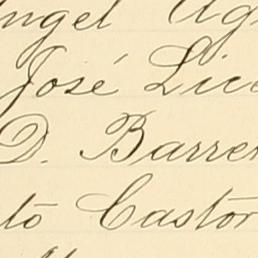 ngel Ag
José Lice
D. Barre
tō Castor